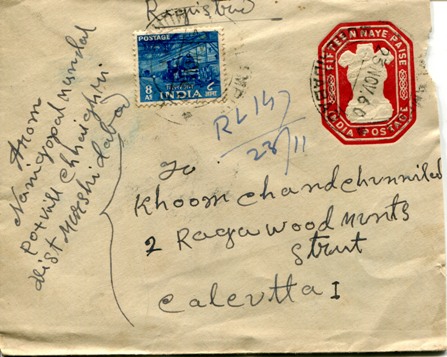 Registered
POSTAGE
8
AS
INDIA
FIFTEEN NAYE PAISE
25 NOV. 60
INDIA POSTAGE
RL 147
23/11
From
Nanigopal Mundal
Po+vill Chhaighri
dist Murshidabad
To
Khoom Chand Chunnilal
2 Raga wood munts
Strut
Calcutta 1